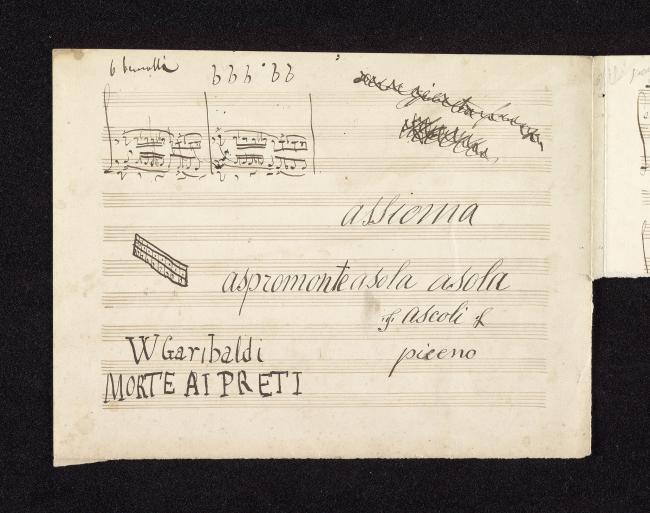 6 bemolli
b b b b b
assioma
aspromonte asola asola
ascoli
piceno
W Garibaldi
MORTE AI PRETI